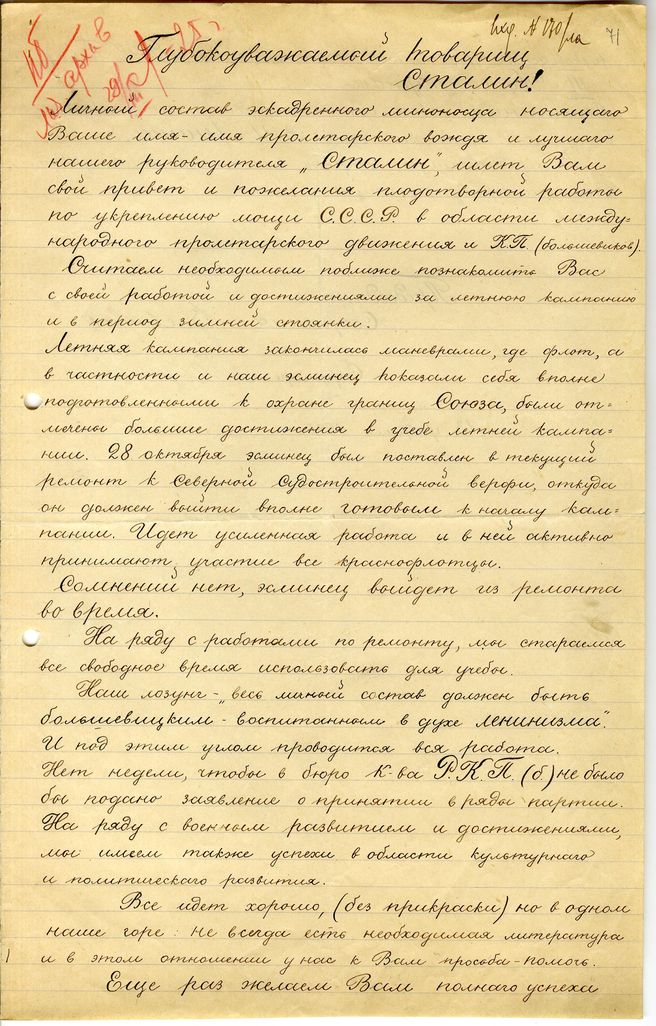 вхд. №
71
архив
Глубокоуважаемый товарищ
Сталин!
Личный состав эскадренного миноносца носящаго
Ваше имя - имя пролетарского вождя и лучшаго
нашего руководителя „Сталин", шлет Вам
свой привет и пожелания плодотворной работы
по укреплению мощи С.С.С.Р. в области между=
народного пролетарского движения и К.П. (большевиков).
Считаем необходимым поближе познакомить Вас
с своей работой и достижениями за летнюю кампанию
и в период зимней стоянки.
Летняя кампания закончилась маневрами, где флот, а
в частности и наш эсминец показали себя вполне
подготовленными к охране границ Союза, были от=
мечены большие достижения в учебе летней кампа=
нии. 28 октября эсминец был поставлен в текущий
ремонт к Северной Судостроительной верфи, откуда
он должен выйти вполне готовым к началу кам=
пании. Идет усиленная работа и в ней активно
принимают участие все краснофлотцы.
Сомнений нет, эсминец выйдет из ремонта
во время.
На ряду с работами по ремонту, мы стараемся
все свободное время использовать для учебы.
Наш лозунг - „весь личный состав должен быть
большевицким - воспитанным в духе ленинизма".
И под этим углом проводится вся работа.
Нет недели, чтобы в бюро к-ва Р.К.П. (б.) не было
бы подано заявление о принятии в ряды партии.
На ряду с военным развитием и достижениями,
мы имеем также успехи в области культурнаго
и политическаго развития.
Все идет хорошо, (без прикраски) но в одном
наше горе: не всегда есть необходимая литература
и в этом отношении у нас к Вам просьба - помочь.
Еще раз желаем Вам полнаго успеха